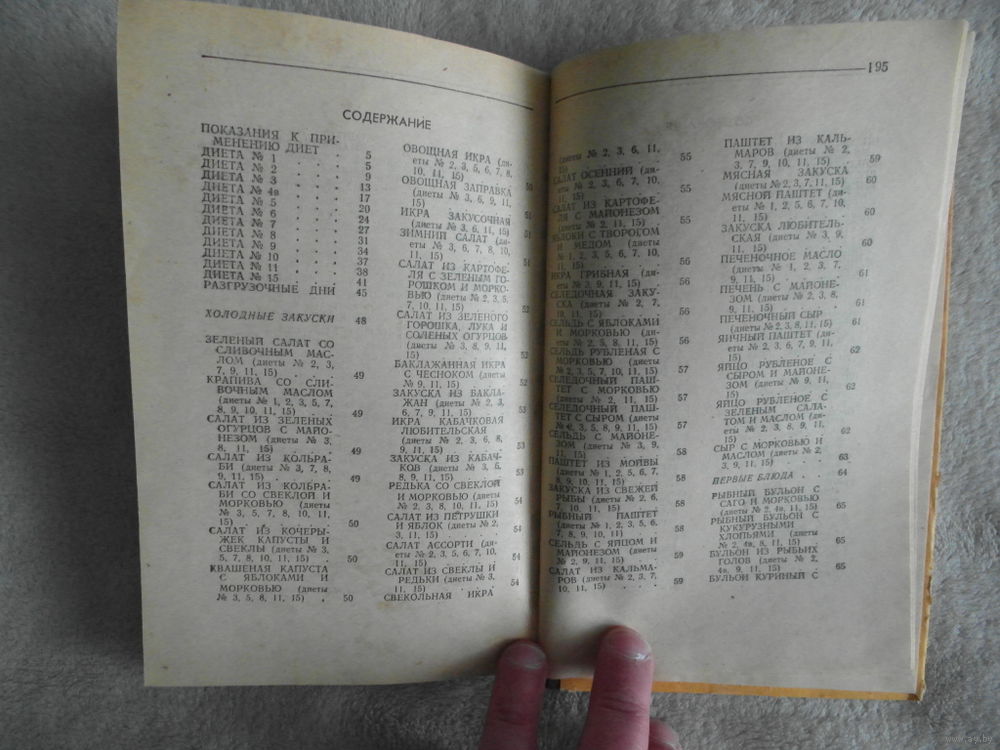 СОДЕРЖАНИЕ
ПОКАЗАНИЯ К ПРИ-
МЕНЕНИЮ ДИЕТ . . 5
ДИЕТА № 1 . . . 5
ДИЕТА № 2 . . . 9
ДИЕТА № 3 . . . 13
ДИЕТА № 4в . . . 17
ДИЕТА № 5 . . . 20
ДИЕТА № 6 . . . 24
ДИЕТА № 7 . . . 27
ДИЕТА № 8 . . . 31
ДИЕТА № 9 . . . 34
ДИЕТА № 10 . . . 37
ДИЕТА № 11 . . . 38
ДИЕТА № 15 . . . 41
РАЗГРУЗОЧНЫЕ ДНИ 45
ХОЛОДНЫЕ ЗАКУСКИ 48
ЗЕЛЕНЫЙ САЛАТ СО
СЛИВОЧНЫМ МАС-
ЛОМ (диеты № 2, 3,
7, 9, 11, 15) . . . 49
КРАПИВА СО СЛИ-
ВОЧНЫМ МАСЛОМ
(диеты № 1, 2, 3, 5, 7,
8, 9, 10, 11, 15) . . . 49
САЛАТ ИЗ ЗЕЛЕНЫХ
ОГУРЦОВ С МАЙО-
НЕЗОМ (диеты № 3,
8, 11, 15) . . . 49
САЛАТ ИЗ КОЛЬРА-
БИ (диеты № 3, 7, 8,
9, 11, 15) . . . 49
САЛАТ ИЗ КОЛЬРА-
БИ СО СВЕКЛОЙ И
МОРКОВЬЮ (диеты
№ 3, 5, 7, 8, 10, 11,
15) . . . 50
САЛАТ ИЗ КОЧЕРЫ-
ЖЕК КАПУСТЫ И
СВЕКЛЫ (диеты № 3,
5, 7, 8, 11, 15) . . 50
КВАШЕНАЯ КАПУСТА
С ЯБЛОКАМИ И
МОРКОВЬЮ (диеты
№ 3, 5, 8, 11, 15) . 50
ОВОЩНАЯ ИКРА (ди-
еты № 2, 3, 5, 6, 7, 8,
10, 11, 15)
ОВОЩНАЯ ЗАПРАВКА
(диеты № 3, 6, 9, 11,
15)
ИКРА ЗАКУСОЧНАЯ
(диеты № 3, 6, 11, 15)
ЗИМНИЙ САЛАТ (ди-
еты № 3, 6, 7, 8, 10,
11, 15)
САЛАТ ИЗ КАРТОФЕ-
ЛЯ С ЗЕЛЕНЫМ ГО-
РОШКОМ И МОРКО-
ВЬЮ (диеты № 2, 3, 5,
7, 10, 11, 15)
САЛАТ ИЗ ЗЕЛЕНОГО
ГОРОШКА, ЛУКА И
СОЛЕНЫХ ОГУРЦОВ
(диеты № 3, 8, 9, 11,
15) 52
БАКЛАЖАННАЯ ИКРА
С ЧЕСНОКОМ (диеты
№ 9, 11, 15) 52
ЗАКУСКА ИЗ БАКЛА-
ЖАН (диеты № 2, 3,
6, 7, 9, 11, 15) 53
ИКРА КАБАЧКОВАЯ
ЛЮБИТЕЛЬСКАЯ
(диеты № 2, 3, 6, 8,
9, 11, 15) 53
ЗАКУСКА ИЗ КАБАЧ-
КОВ (диеты № 3, 6,
8, 9, 11, 15) 53
РЕДЬКА СО СВЕКЛОЙ
И МОРКОВЬЮ (диеты
№ 2, 3, 8, 10, 11, 15) 54
САЛАТ ИЗ ПЕТРУШКИ
И ЯБЛОК (диеты № 2,
3, 11, 15) 54
САЛАТ АССОРТИ (ди-
еты № 2, 3, 5, 6, 7, 10,
11, 15) 54
САЛАТ ИЗ СВЕКЛЫ И
РЕДЬКИ (диеты № 3,
11, 15) 54
СВЕКОЛЬНАЯ ИКРА
195
(диеты № 2, 3, 6, 11,
15) 55
САЛАТ ОСЕННИЙ (ди-
еты № 2, 3, 6, 7, 10,
11, 15) 55
САЛАТ ИЗ КАРТОФЕ-
ЛЯ С МАЙОНЕЗОМ
(диеты № 2, 11, 15) 55
ЯБЛОКИ С ТВОРОГОМ
И МЕДОМ (диеты
№ 1, 2, 3, 5, 6, 7, 10,
11, 15) 56
ИКРА ГРИБНАЯ (ди-
еты № 3, 9, 11, 15) 56
СЕЛЕДОЧНАЯ ЗАКУ-
СКА (диеты № 2, 7,
10, 11, 15)
СЕЛЬДЬ С ЯБЛОКАМИ
И МОРКОВЬЮ (диеты
№ 2, 5, 8, 11, 15) 56
СЕЛЬДЬ РУБЛЕНАЯ С
МОРКОВЬЮ (диеты
№ 2, 3, 5, 7, 10, 11, 15) 57
СЕЛЕДОЧНЫЙ ПАШ-
ТЕТ С МОРКОВЬЮ
(диеты № 2, 7, 11, 15)
СЕЛЕДОЧНЫЙ ПАШ-
ТЕТ С СЫРОМ (диеты
№ 2, 3, 5, 8, 9, 11, 15) 57
СЕЛЬДЬ С МАЙОНЕ-
ЗОМ (диеты № 3, 9,
11, 15) 58
ПАШТЕТ ИЗ МОЙВЫ
(диеты № 1, 2, 5, 6, 7,
8, 9, 10, 11, 15) 58
ЗАКУСКА ИЗ СВЕЖЕЙ
РЫБЫ (диеты № 2, 6,
7, 10, 11, 15)
РЫБНЫЙ ПАШТЕТ
(диеты № 1, 2, 3, 5, 6,
7, 8, 9, 10, 11, 15) 58
СЕЛЬДЬ С ЯЙЦОМ И
МАЙОНЕЗОМ (диеты
№ 2, 9, 11, 15) 59
САЛАТ ИЗ КАЛЬМА-
РОВ (диеты № 2, 3, 7,
10, 11, 15) . . . 59
ПАШТЕТ ИЗ КАЛЬ-
МАРОВ (диеты № 2,
3, 7, 9, 10, 11, 15) 59
МЯСНАЯ ЗАКУСКА
(диеты № 2, 3, 7, 11, 15) 60
МЯСНОЙ ПАШТЕТ (ди-
еты № 1, 2, 5, 6, 7, 10,
11, 15) 60
ЗАКУСКА ЛЮБИТЕЛЬ-
СКАЯ (диеты № 3, 9,
11, 15) 60
ПЕЧЕНОЧНОЕ МАСЛО
(диеты № 1, 2, 3, 7,
9, 11, 15) 61
ПЕЧЕНЬ С МАЙОНЕ-
ЗОМ (диеты № 2, 3, 8,
9, 11, 15) 61
ПЕЧЕНОЧНЫЙ СЫР
(диеты № 2, 3, 8, 11, 15) 61
ЯИЧНЫЙ ПАШТЕТ (ди-
еты № 2, 3, 6, 7, 9, 11,
15) 62
ЯЙЦО РУБЛЕНОЕ С
СЫРОМ И МАЙОНЕ-
ЗОМ (диеты № 9, 11,
15) 62
ЯЙЦО РУБЛЕНОЕ С
ЗЕЛЕНЫМ САЛА-
ТОМ И МАСЛОМ (ди-
еты № 2, 3, 8, 9, 11,
15) 62
СЫР С МОРКОВЬЮ И
МАСЛОМ (диеты № 2,
3, 9, 11, 15) 63
ПЕРВЫЕ БЛЮДА . 64
РЫБНЫЙ БУЛЬОН С
САГО И МОРКОВЬЮ
(диеты № 2, 4в, 11, 15) 65
РЫБНЫЙ БУЛЬОН С
КУКУРУЗНЫМИ
ХЛОПЬЯМИ (диеты
№ 2, 4в, 8, 11, 15) 65
БУЛЬОН ИЗ РЫБЬИХ
ГОЛОВ (диеты № 2,
4в, 9, 11, 15) 65
БУЛЬОН КУРИНЫЙ С
www.ay.by